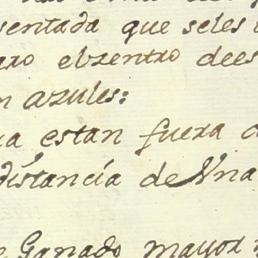 sentada que seles
dees
n azules:
a estan fuera
distancia de Vna
e Ganado mayor